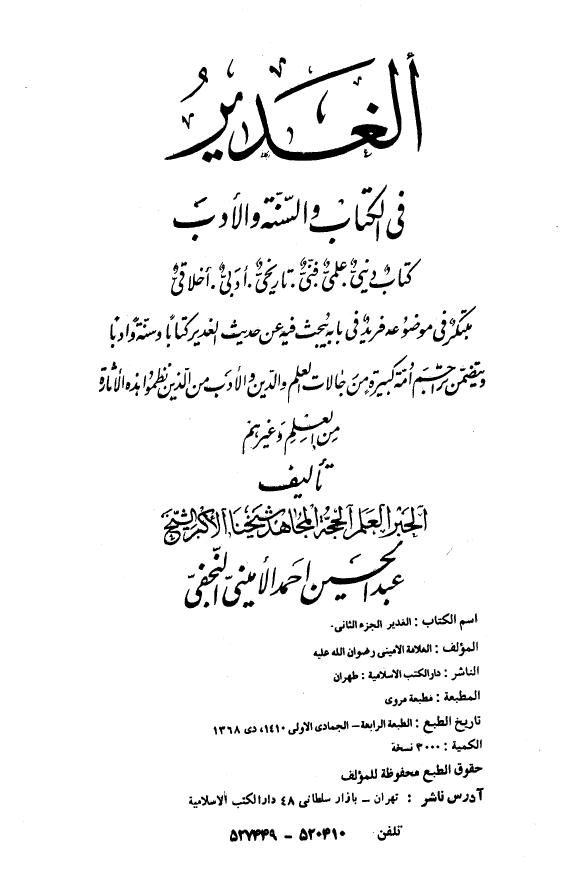 ألغدير
في الكتاب والسنة والأدب
كتاب ديني. علمي. فني. تاريخي. أدبي. أخلاقي
مبتكر في موضوعه فريد في بابه يبحث فيه عن حديث الغدير كتابا وسنة وادبا
ويتضمن تراجم أمة كبيرة من رجالات العلم والدين والأدب من الذين نظموا هذه الأثارة
من العلم وغيرهم
تأليف
الحبر العلم الحجة المجاهد شيخنا الأكبر الشيخ
عبد الحسين احمد الأميني النجفي
اسم الكتاب : الغدير الجزء الثانى.
المؤلف : العلامة الامينى رضوان الله عليه
الناشر : دارالكتب الاسلامية : طهران
المطبعة : مطبعة مروى
تاريخ الطبع : الطبعة الرابعة – الجمادى الاولى ۱۴۱۰، دى ۱۳۶۸
الكمية : ۳۰۰۰ نسخة
حقوق الطبع محفوظة للمؤلف
آدرس ناشر : تهران – بازار سلطانى ۴۸ دارالكتب الاسلامية
تلفن ۵۲۰۴۱۰ – ۵۲۷۴۴۹